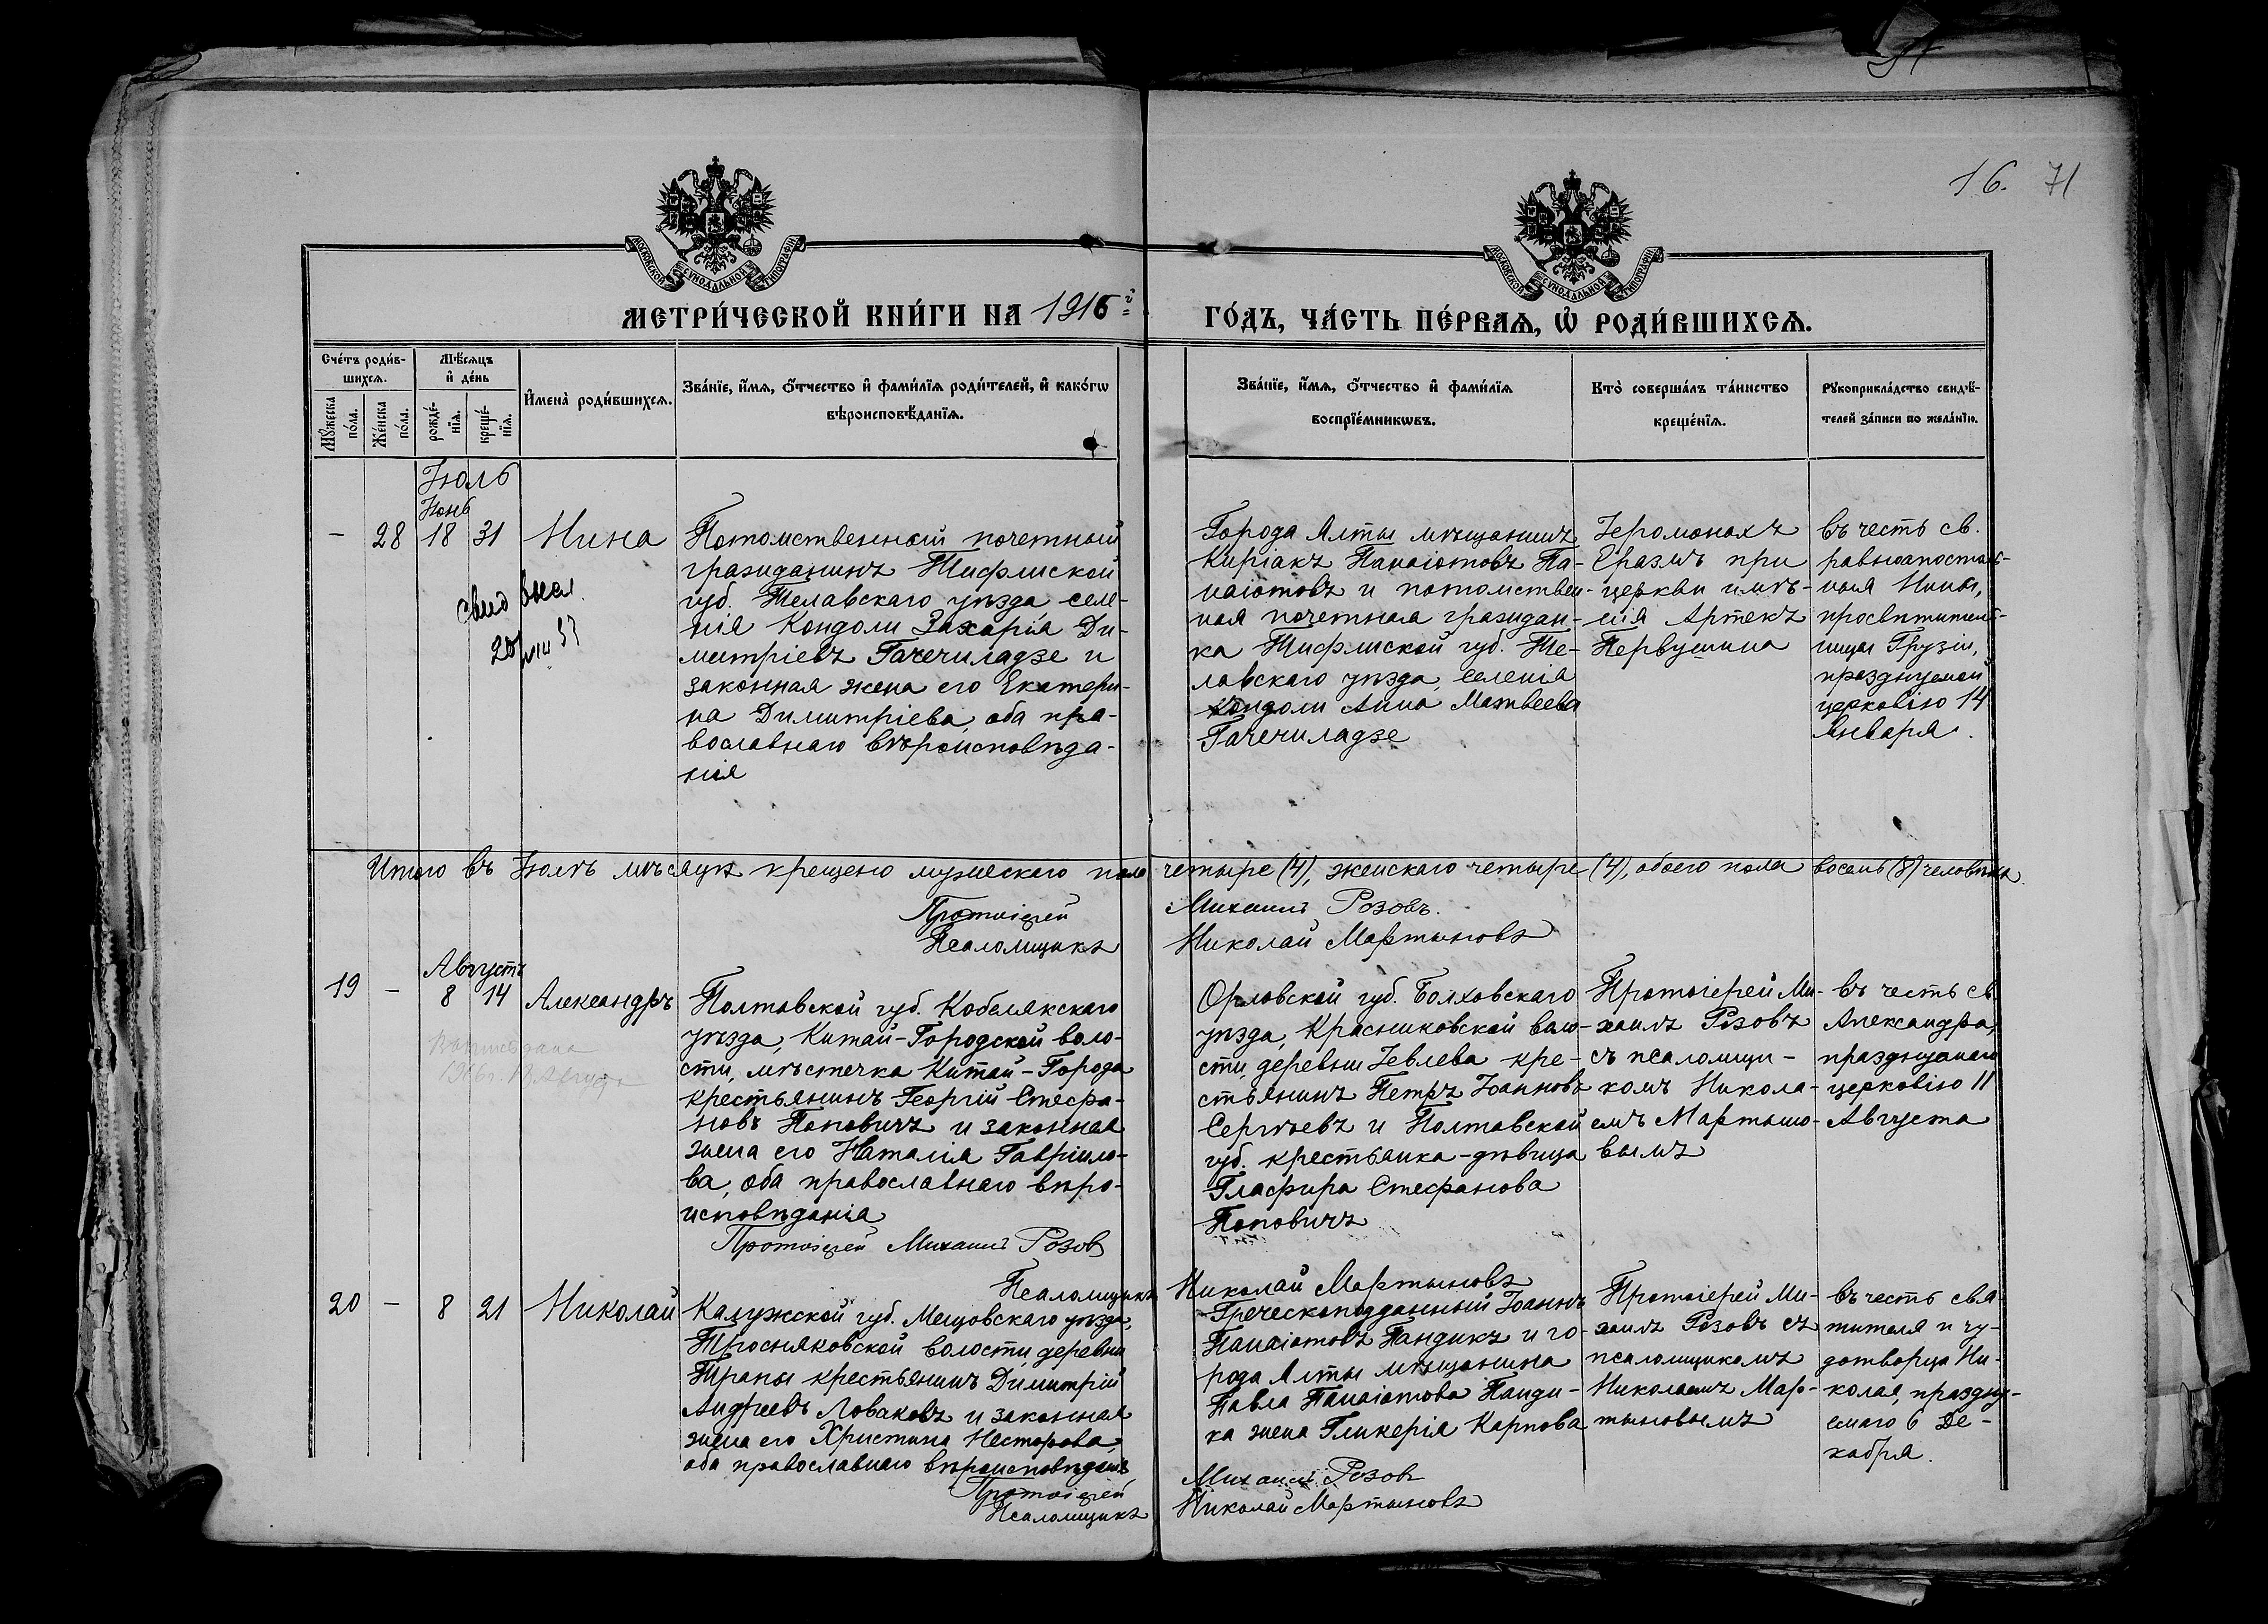 91
16. 71
МОСКОВСКОЙ СѴНОДАЛЬНОЙ ТИПОГРАФІИ
МОСКОВСКОЙ СѴНОДАЛЬНОЙ ТИПОГРАФІИ
МЕТРИ́ЧЕСКОЙ КНИ́ГИ НА 1916й
ГО́ДЪ, ЧА́СТЬ ПЕ́РВАѦ, Ѡ РОДИ́ВШИХСѦ.
Сче́тъ роди́в-
шихсѧ.
Мꙋжеска по́ла.
Же́нска по́ла.
Мѣ́сѧцъ
и де́нь
рожде́-
нїѧ.
креще́-
нїѧ.
Имена̀ роди́вшихсѧ.
Зва́нїе, и́мѧ, о́тчество и фами́лїѧ роди́телей, и како́гѡ
вѣроисповѣ́данїѧ.
Зва́нїе, и́мѧ, о́тчество и фами́лїѧ
воспрїе́мникѡвъ.
Кто̀ соверша́лъ та́инство
креще́нїѧ.
Рꙋкоприкла́дство свидѣ́-
телей за́писи по жела́нїю.
Іюль
Іюнь
- 28 18 31 Нина
Потомственный почетный
гражданинъ Тифлиской
губ. Телавскаго уѣзда, селе-
нія Кондоли Захарія Ди-
митріевъ Гачечиладзе и
законная жена его Екатери-
на Димитріева, оба пра-
вославнаго вѣроисповѣда-
нія
Города Ялты мѣщанинъ
Киріакъ Панаіотовъ Па-
наіотовъ и потомствен-
ная почетная граждан-
ка Тифлиской губ. Те-
лавскаго уѣзда, селенія
Кондоли Анна Матвеева
Гачечиладзе
Іеромонахъ
Еразмъ при
церкви имѣ-
нія Артекъ
Первушина
въ честь св.
равноапостоль-
ныя Нины,
просвѣтитель-
ницы Грузіи,
празднуемой
церковію 14
Января.
свид выел.
20/VIII 57
Итого въ Іюлѣ мѣсяцѣ крещено мужескаго пола четыре (4), женскаго четыре (4), обоего пола восемь (8) человѣка.
Протоіерей Михаилъ Розовъ.
Псаломщикъ Николай Мартыновъ
Августъ
19 - 8 14 Александръ
Полтавской губ. Кобелякскаго
уѣзда, Китай-Городской воло-
сти, мѣстечка Китай-Города
крестьянинъ Георгій Стефа-
новъ Поповичъ и законная
жена его Наталія Гавріило-
ва, оба православнаго вѣро-
исповѣданія
Орловской губ. Болховскаго
уѣзда, Красниковской воло-
сти, деревни Іевлева кре-
стьянинъ Петръ Іоанновъ
Сергѣевъ и Полтавской
губ. крестьянка-дѣвица
Глафира Стефанова
Поповичъ
Протоіерей Ми-
хаилъ Розовъ
съ псаломщи-
комъ Никола-
емъ Мартыно-
вымъ
въ честь св.
Александра,
празднуемаго
церковію 11
Августа
Протоіерей Михаилъ Розов
Псаломщикъ Николай Мартыновъ
20 - 8 21 Николай
Калужской губ. Мещовскаго уѣзда,
Тросняковской волости, деревни
крестьянинъ Димитрій
Андреевъ Новаковъ и законная
жена его Христина Несторова,
оба православнаго вѣроисповѣданія
Греческоподданный Іоаннъ
Панаіотовъ Пандикъ и го-
рода Ялты мѣщанина
Павла Панаіотова Панди-
ка жена Гликерія Карпова
Протоіерей Ми-
хаилъ Розовъ съ
псаломщикомъ
Николаемъ Мар-
тыновымъ
въ честь свя-
тителя и чу-
дотворца Ни-
колая, праздну-
емаго 6 Де-
кабря.
Протоіерей Михаилъ Розовъ
Псаломщикъ Николай Мартыновъ